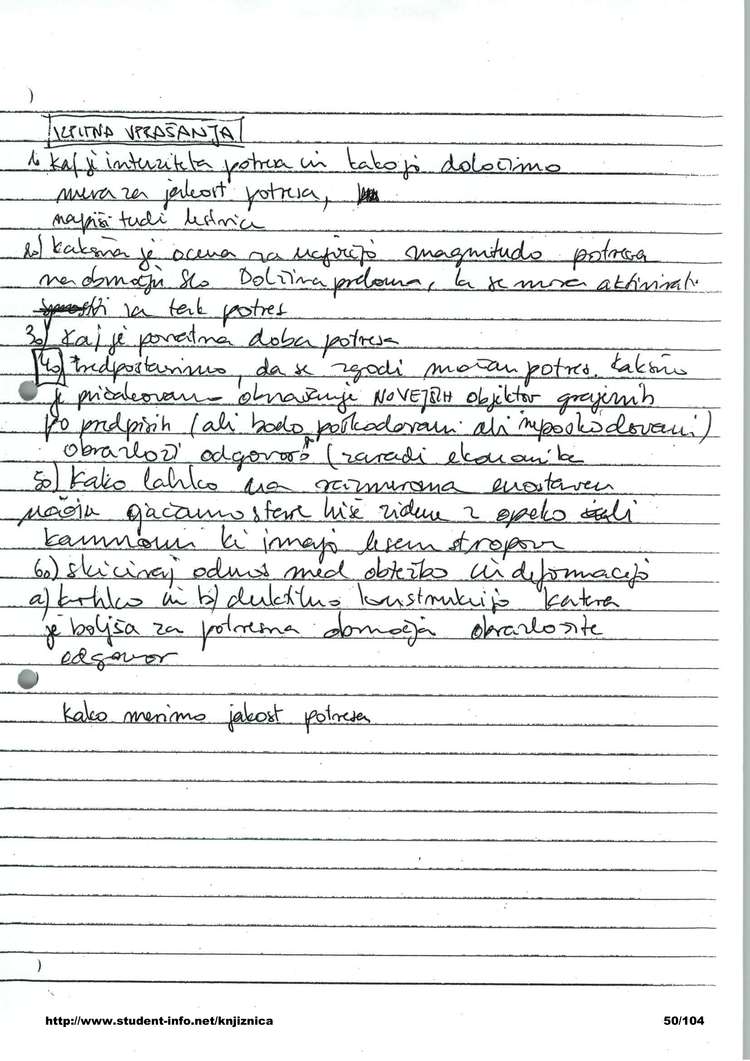 IZPITNA VPRAŠANJA
1. Kaj je intenziteta potresa in kako jo določimo
mera za jakost potresa,
napiši tudi lestvice
2.) kakšna je ocena za največjo magnitudo potresa
na območju Slo Dolžina preloma, ki se mora aktivirati
za tak potres
3.) Kaj je povratna doba potresa
4.) Predpostavimo, da se zgodi močan potres. Kakšno
je pričakovano obnašanje NOVEJŠIH objektov grajenih
po predpisih (ali bodo poškodovani ali nepoškodovani)
obrazloži odgovor (zaradi ekonomike
5.) Kako lahko na razmeroma enostaven
način ojačamo stare hiše zidane z opeko ali
kamnom ki imajo lesen strop
6.) skiciraj odnos med obtežbo in deformacijo
a) krhko in b) duktilno konstrukcijo katera
je boljša za potresna območja obrazložite
odgovor
Kako merimo jakost potresa
http://www.student-info.net/knjiznica
50/104